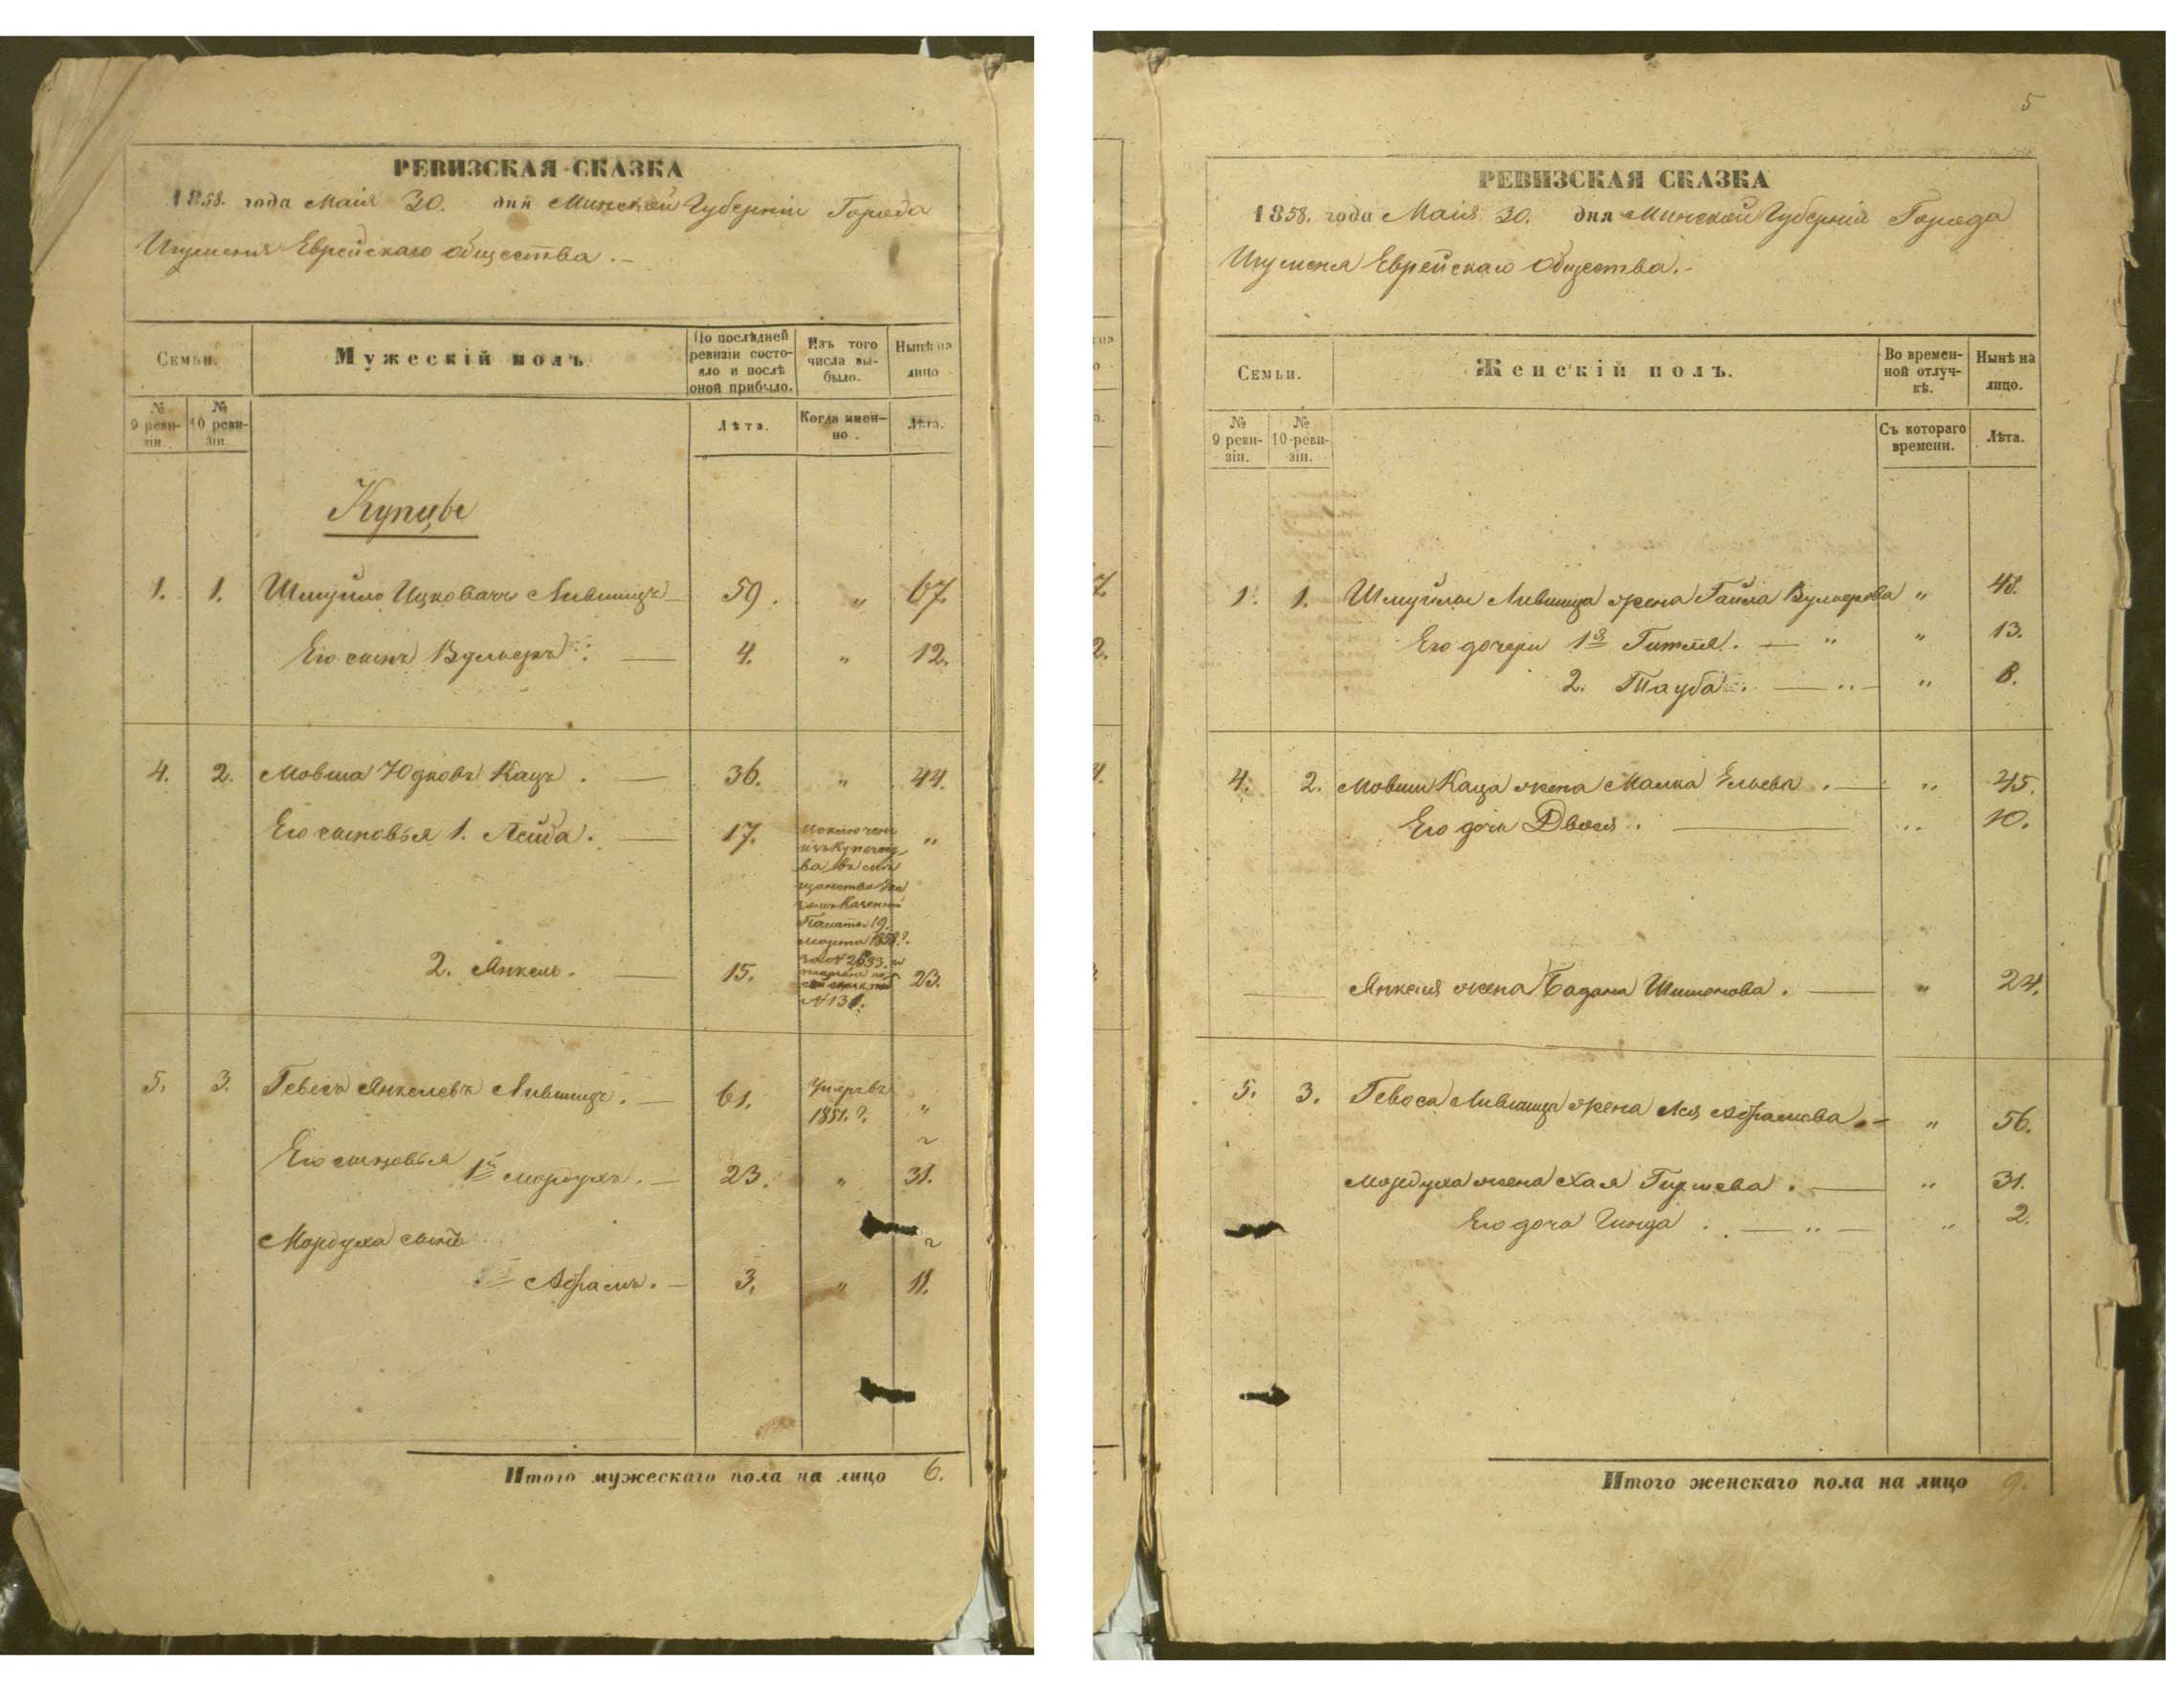 РЕВИЗСКАЯ СКАЗКА
1858. года Маія 30. дня Минской Губерніи Города
Игуменя Еврейскаго общества.
Семьи.
Мужескій полъ
По послѣдней ревизіи состояло и послѣ оной прибыло.
Изъ того числа выбыло.
Нынѣ на лицо
№ 9 ревизіи.
№ 10 ревизіи.
Лѣта.
Когда именно.
Лѣта.
Купцы
1. 1. Шмуйло Ицковичъ Лившицъ 59. " 67.
Его сынъ Вульверъ 4. " 12.
4. 2. Мовша Юдковъ Кацъ. 36. " 44.
Его сыновья 1. Лейба. 17. "
исключенъ
изъ купечест
ва въ мѣ
щанство
Палаты 19
марта 1858.
за № 2633.
№ 131.
2. Янкель. 15. 23.
5. 3. Гевесъ Янкелевъ Лившицъ. 61. Умеръ въ 1851. "
Его сыновья
1й Мордухъ. 23. " 31.
Мордуха сынъ
Абрамъ. 3. " 11.
Итого мужескаго пола на лицо 6.
5
РЕВИЗСКАЯ СКАЗКА
1858. года Маія 30. дня Минской Губерніи Города
Игуменя Еврейскаго общества.
Семьи.
Женскій полъ.
Во временной отлучкѣ.
Нынѣ на лицо.
№ 9 ревизіи.
№ 10 ревизіи.
Съ котораго времени.
Лѣта.
1. 1. Шмуйлы Лившица жена Гайла Вульверова " 48.
Его дочери 1я Гитля. " 13.
2. Тауба. " 8.
4. 2. Мовши Каца жена Малка Ельева. " 45.
Его дочь Двося. " 10.
Янкеля жена Бадана Шимонова. " 24.
5. 3. Гевеса Лившица жена Лея Абрамова. " 56.
Мордуха жена Хая Гиршева. " 31.
Его дочь Гинда. " 2.
Итого женскаго пола на лицо 9.